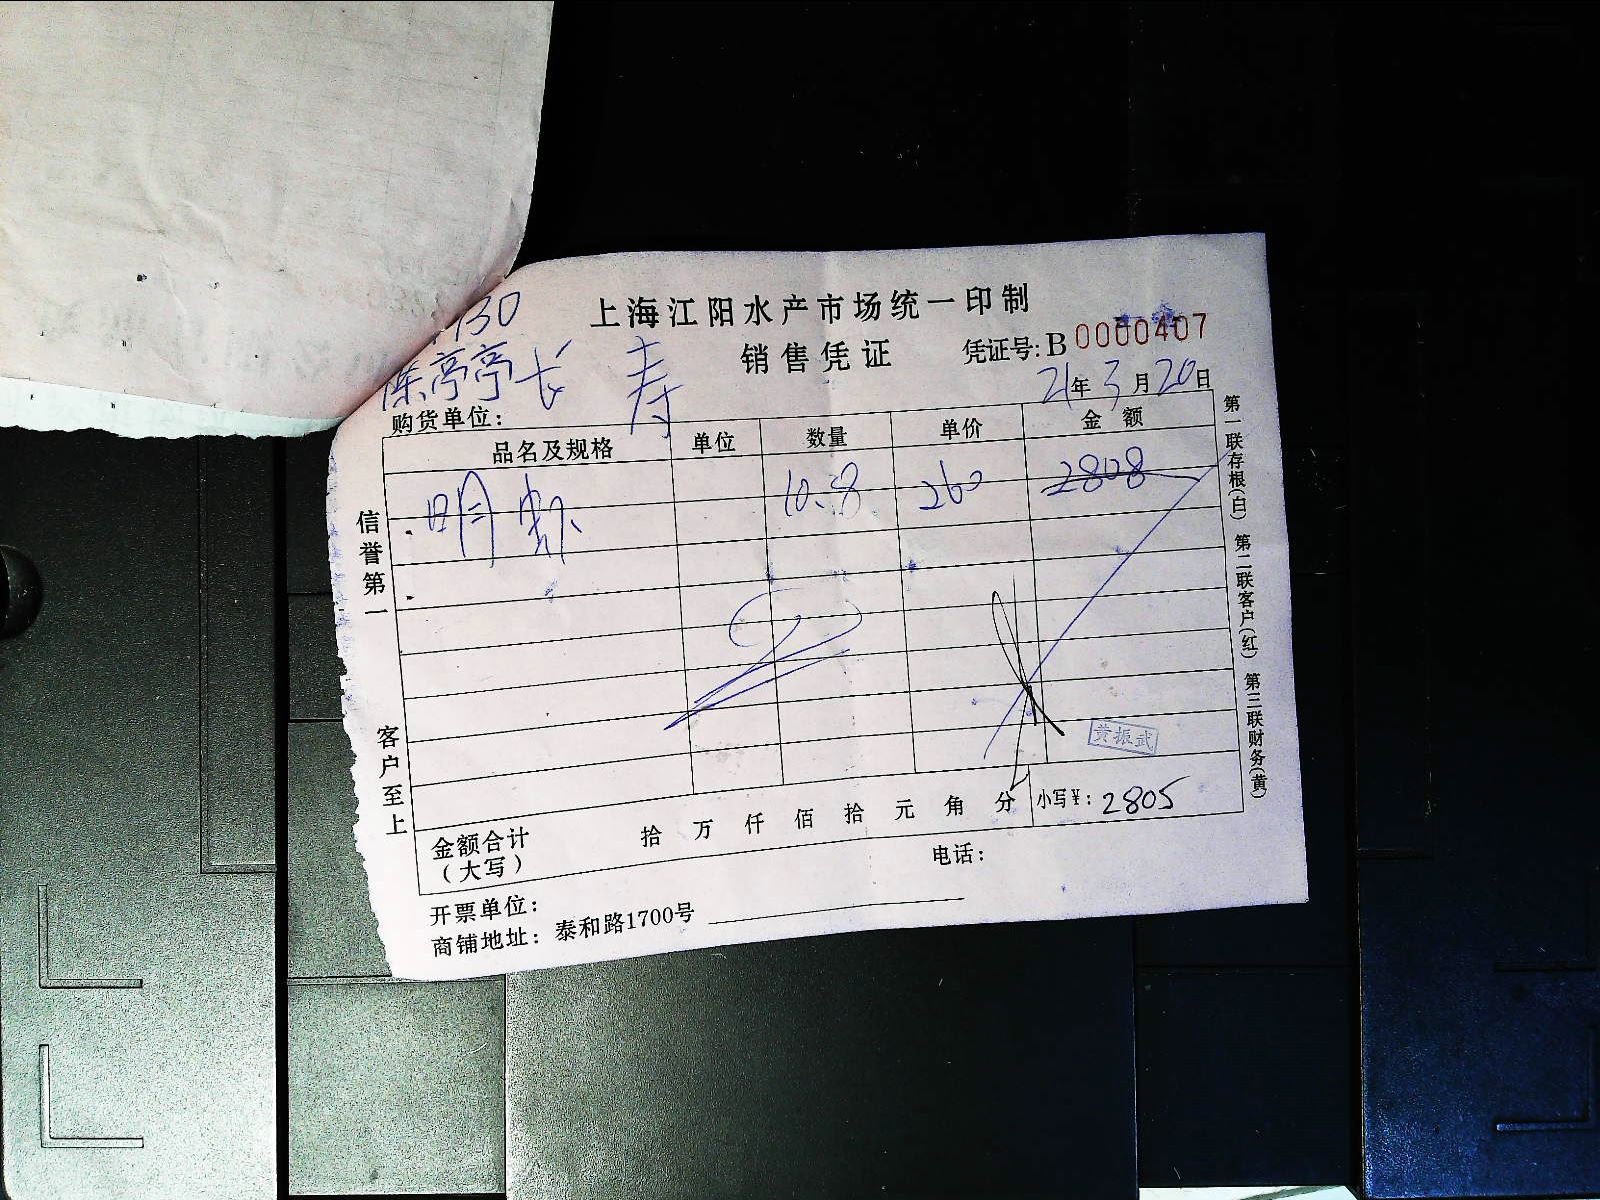 上海江阳水产市场统一印制
销售凭证 凭证号:B 0000407
130
陈亭亭 长寿
21年3月20日
购货单位:
品名及规格 单位 数量 单价 金额
明虾 10.8 260 2808
信誉第一 客户至上
第一联存根(白) 第二联客户(红) 第三联财务(黄)
黄振武
金额合计(大写) 拾 万 仟 佰 拾 元 角 分 小写¥: 2805
电话:
开票单位:
商铺地址: 泰和路1700号